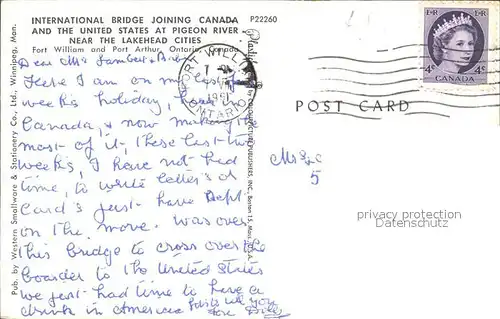 INTERNATIONAL BRIDGE JOINING CANADA
AND THE UNITED STATES AT PIGEON RIVER
NEAR THE LAKEHEAD CITIES
Fort William and Port Arthur, Ontario, Canada
P22260
Dear Mr Lambert &
Here I am on my last
weeks holiday,
Canada & now making the
most of it, these last two
weeks, I have not had
time, to write letter's or
Card's just have kept
on the move. was over
this bridge to cross over the
boarder to the United States
we just had time to have a
drink in America
Pub. by Western Smallware & Stationery Co., Ltd., Winnipeg, Man.
PUBLISHERS, INC., Boston 15, Mass., U.S.A.
FORT WILLIAM
ONTARIO
E R
E R
4c
4c
CANADA
POST CARD
5
privacy protection
Datenschutz